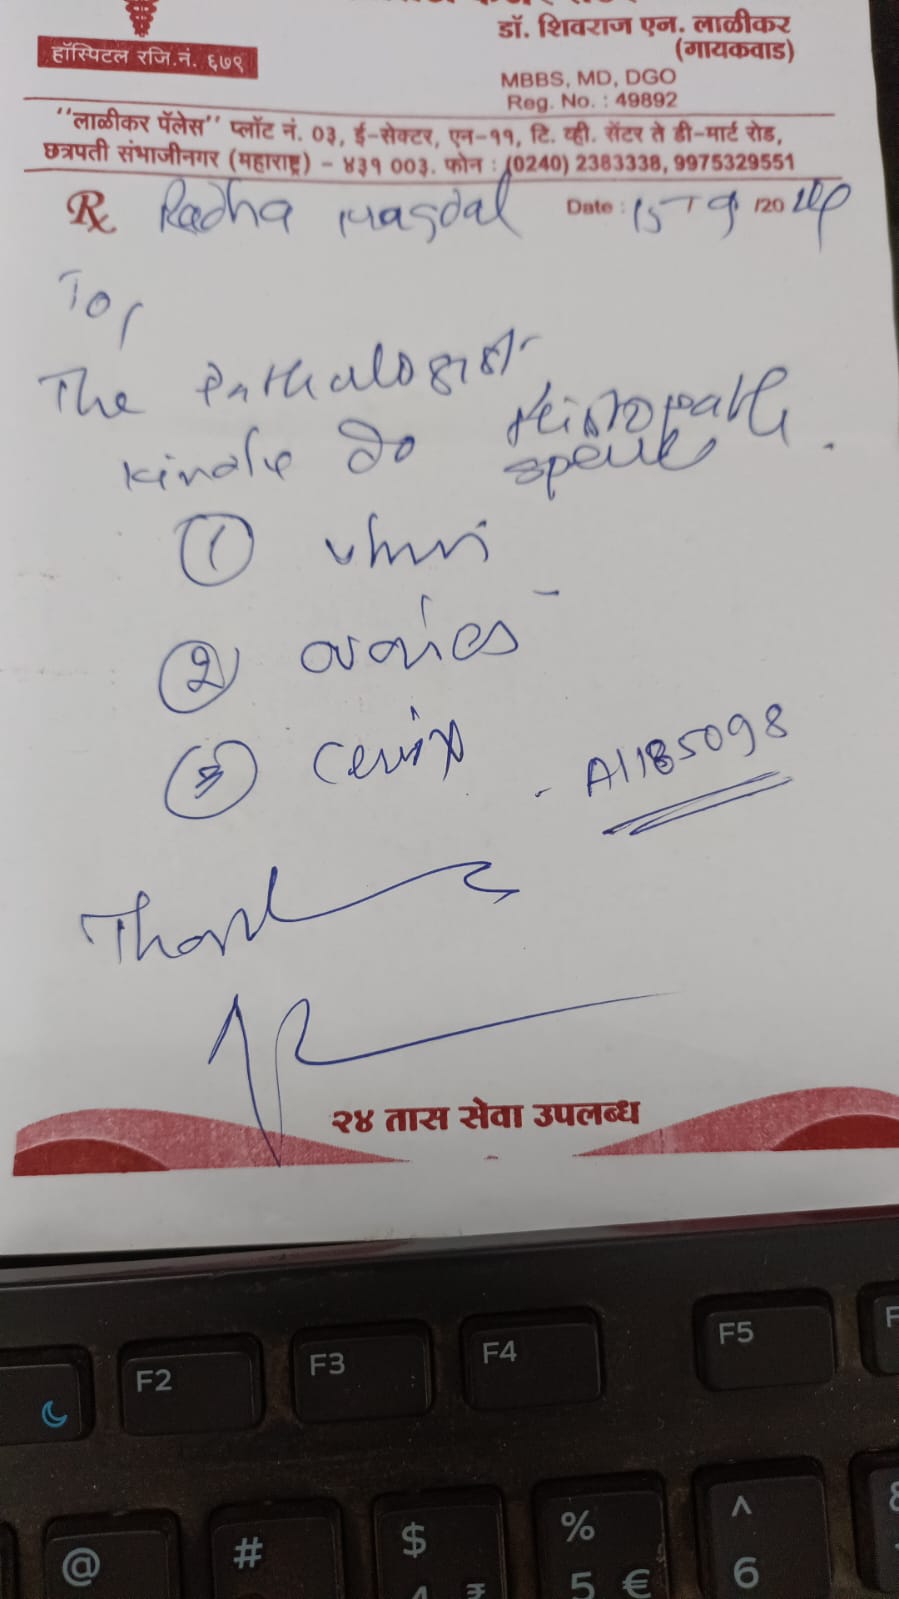 डॉ. शिवराज एन. लाळीकर
(गायकवाड)
हॉस्पिटल रजि.नं. ६७९
MBBS, MD, DGO
Reg. No. : 49892
"लाळीकर पॅलेस" प्लॉट नं. ०३, ई-सेक्टर, एन-११, टि. व्ही. सेंटर ते डी-मार्ट रोड,
छत्रपती संभाजीनगर (महाराष्ट्र) - ४३१ 003. फोन : (0240) 2383338, 9975329551
Rx Radha Date : 15 - 9 /20
To,
The Pathologist
Kindle do Histopath
1
2 ovaries
3 Cervix
- A1185098
Thanks
२४ तास सेवा उपलब्ध
F2 F3 F4 F5
@ # $ ₹ % 5 € ^ 6